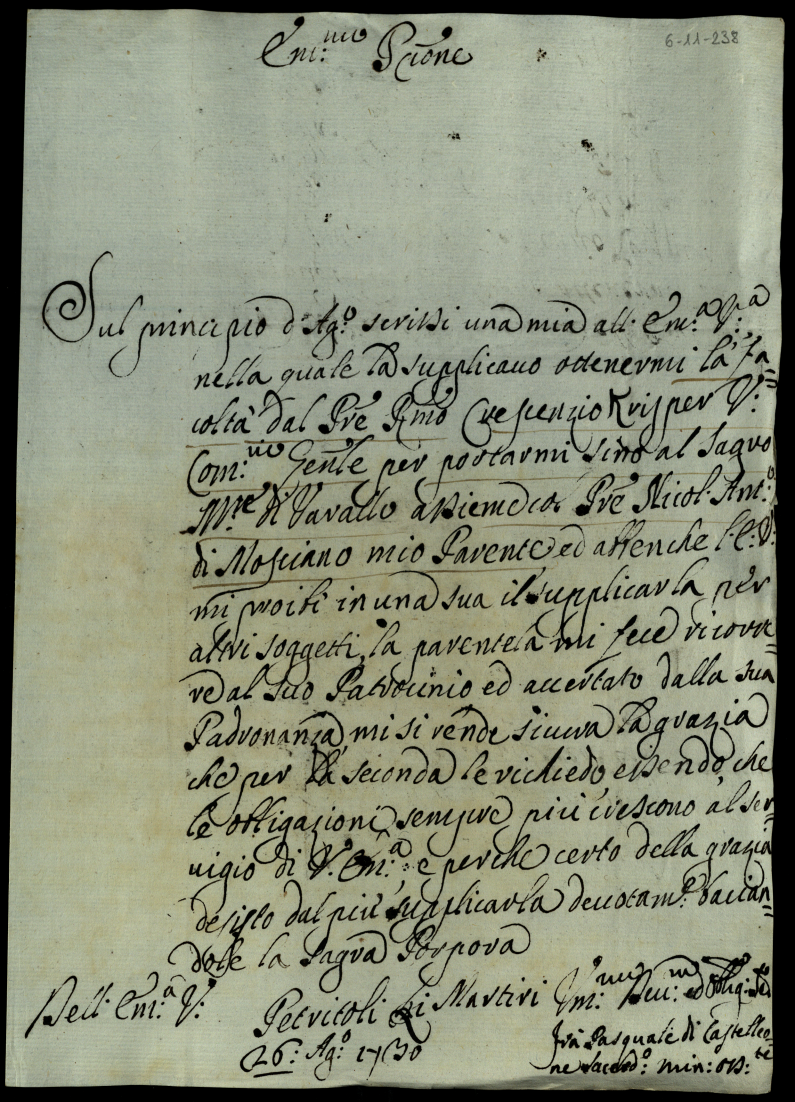 6-11-238
Em:mo Prône
Sul principio d'Ag:o scrissi una mia all' Em:a V:a
nella quale la supplicavo ottenermi la fa=
coltà dal Pre Rmo Crescenzio Krisper V:
Com:rio Genle per portarmi sino al Sagro
Mte di Varallo assieme col Pre Nicol: Ant:o
di Mosciano mio Parente ed ancorche l'E: V:
mi proibì in una sua il supplicarla per
altri soggetti, la parentela mi fece ricorre=
re al suo Patrocinio ed accertato dalla sua
Padronanza, mi si rende sicura la grazia
che per la seconda le richiedo, essendo, che
le obligazioni sempre più crescono al ser=
vigio di V: Em:a e perche certo della grazia
desisto dal più supplicarla devotam:e bacian=
dole la Sagra Porpora
Dell' Em:a V:
Petritoli Li Martiri
26: Ag:o 1730
Um:mo Dev:mo ed Oblig:
frà Pasquale di Castelleo=
ne Sacerd:o Min: Oss:te